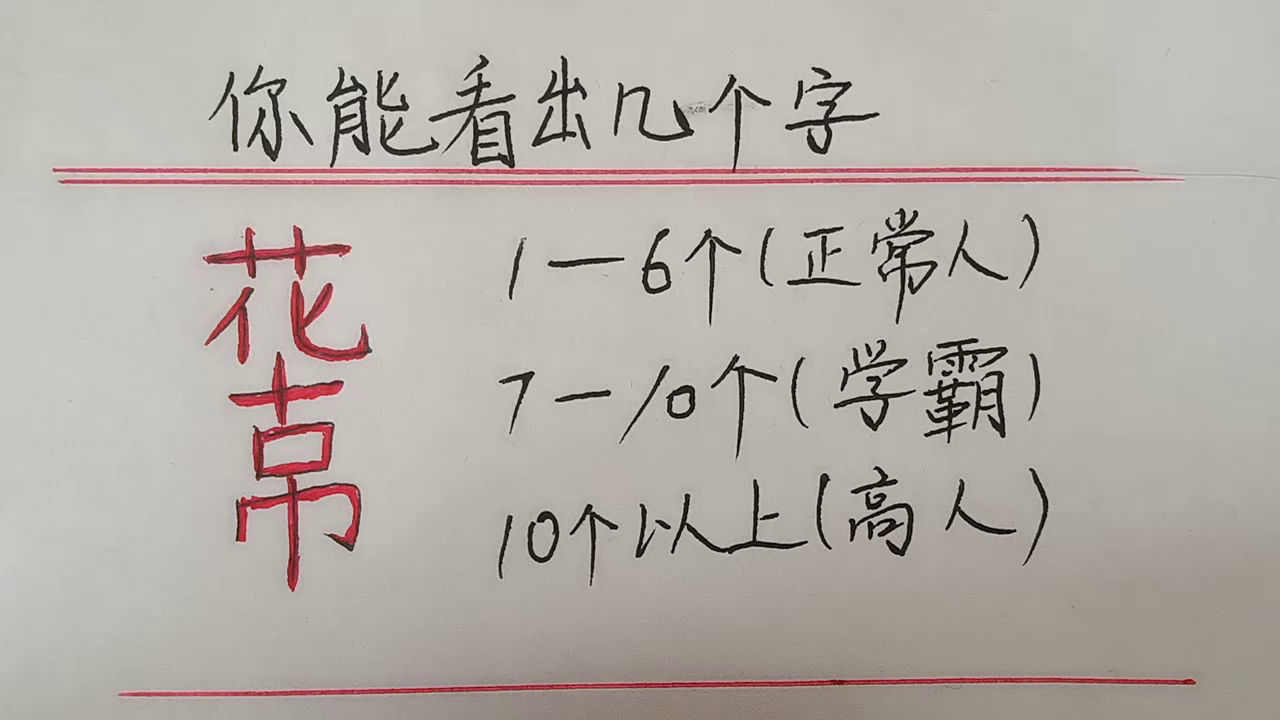 你能看出几个字
花
吊
1—6个(正常人)
7—10个(学霸)
10个以上(高人)